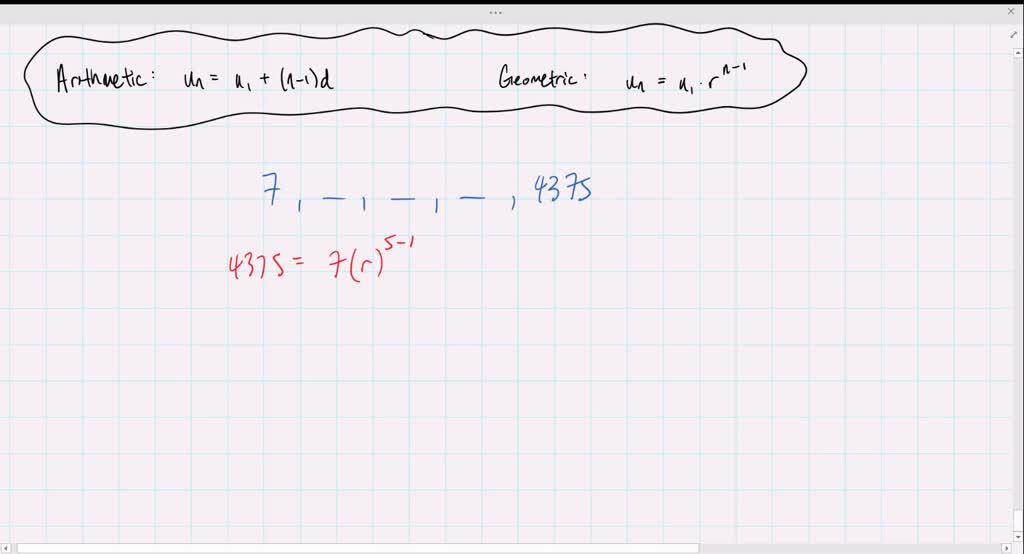 Arithmetic: uₙ = u₁ + (n-1)d Geometric: uₙ = u₁ · rⁿ⁻¹
7, _, _, _, 4375
4375 = 7(r)⁵⁻¹